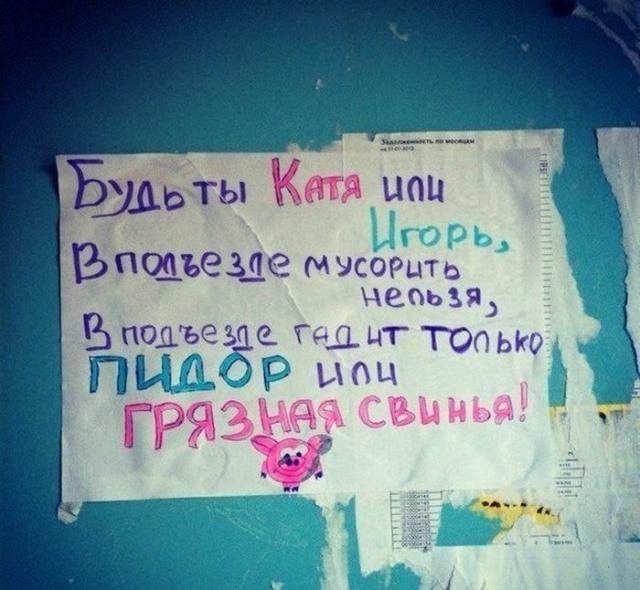 Задолженность по месяцам
Будь ты Катя или
Игорь,
В подъезде мусорить
нельзя,
В подъезде гадит только
ПИДОР или
ГРЯЗНАЯ свинья!